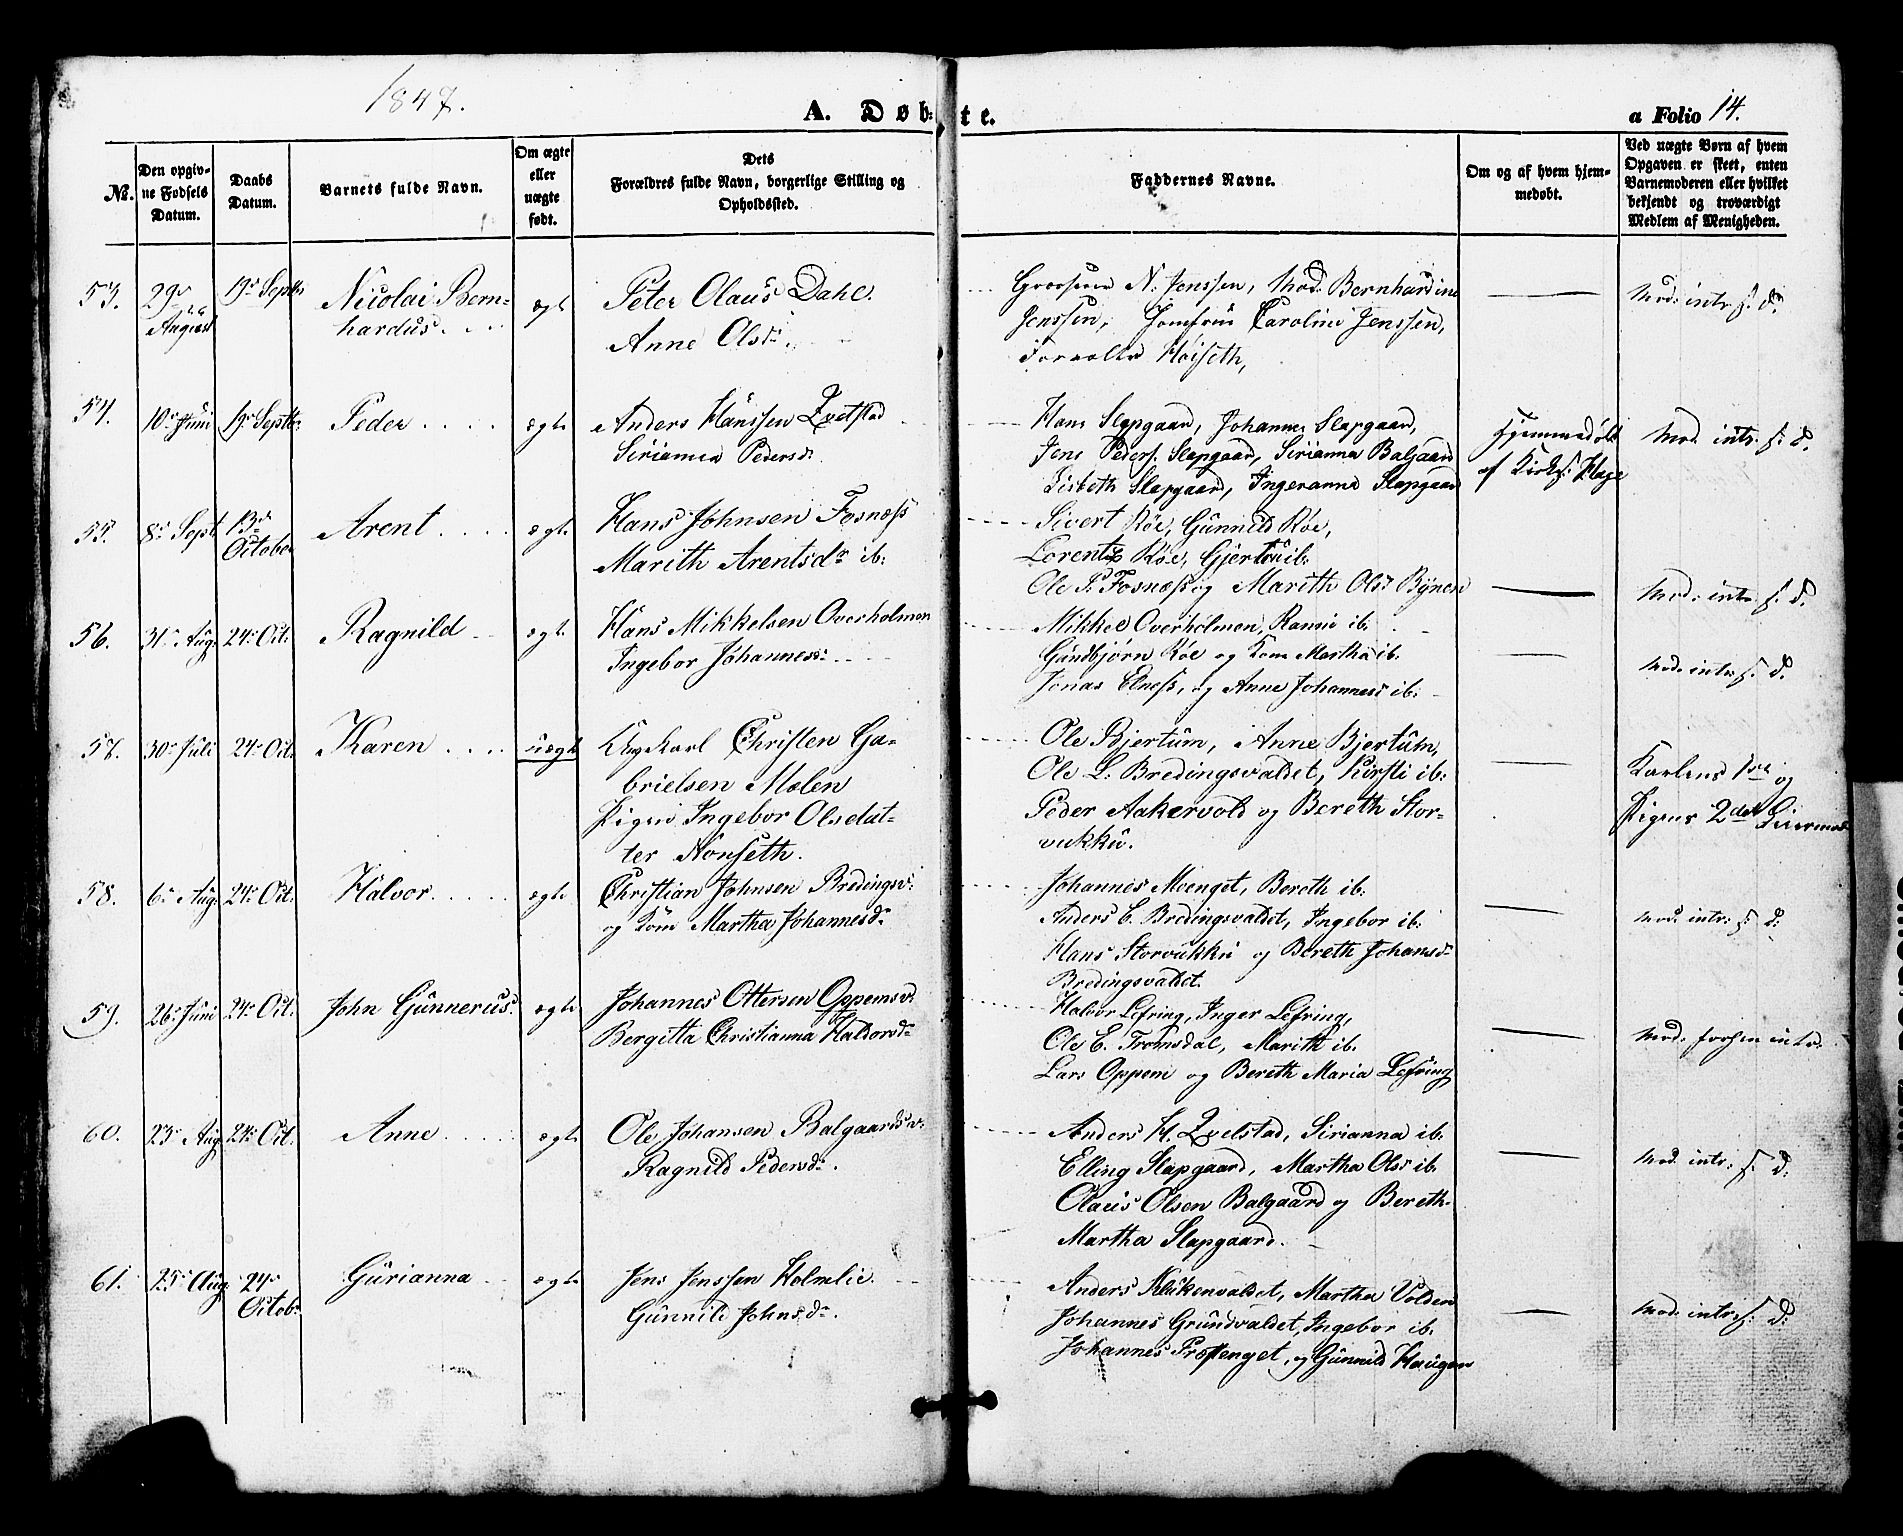 1847.
A. Døbte.
a Folio 14.
No.
Den opgiv-
ne Fødsels
Datum.
Daabs
Datum.
Barnets fulde Navn.
Om ægte
eller
uægte
født.
Dets
Forældres fulde Navn, borgerlige Stilling og
Opholdssted.
Faddernes Navne.
Om og af hvem hjem-
medøbt.
Ved uægte Børn af hvem
Opgaven er skeet, enten
Barnemoderen eller hvilket
bekjendt og troværdigt
Medlem af Menigheden.
53. 29de August 19de Septbr Nicolai Bern-
hardus. ægte Peter Olaus Dahl.
Anne Olsdr.
N. Jenssen, Mod. Bernhardine
Jenssen, Jomfrue Caroline Jenssen,
Forvalter Høiseth,
Mod. intr. f. d.
54. 10de Juni 19de Septbr. Peder ægte Anders Hanssen Qvelstad
Sirianna Pedersdr.
Hans Slapgaard, Johanna Slapgaard,
Jens Peders. Slapgaard, Sirianna Balgaard
Lisbeth Slapgaard, Ingeranna Slapgaard
Hjemmedøbt
af Kirkes. Hage
Mod. intr. f. d.
55. 8de Sept. 13de
October Arent ægte Hans Johnsen Fosnæss
Marith Arentsdr ib:
Sivert Röe, Gunnild Röe,
Lorentz Röe, Gjertru ib.
Ole P. Fosnæss og Marith Olsdr Bynen
Mod: intr f. d.
56. 31te Aug. 24de Oct. Ragnild ægte Hans Mikkelsen Overholmen
Ingebor Johannesdr
Mikkel Overholmen, Ranni ib.
Gundbjørn Röe og Kone Martha ib.
Jonas Elness, og Anne Johannesd ib:
Mod. intr. f. d.
57. 30te Juli 24de Oct. Karen uægte Ungkarl Christen Ga-
brielsen Molen
Pigen Ingebor Olsdat-
ter Nonseth.
Ole Bjertum, Anne Bjertum,
Ole L. Bredingsvaldet, Kirsti ib:
Peder Aakervold og Bereth Stor-
vukku.
Karlens 1ste og
Pigens 2det Leiermaal
58. 6te Aug. 24de Oct. Halvor ægte Christian Johnsen Bredingsv:
og Kone Martha Johannesdr
Johannes Moenget, Bereth ib:
Anders C. Bredingsvaldet, Ingebor ib:
Hans Storvukku og Bereth Johansdr
Bredingsvaldet.
Mod. intr: f. d:
59. 26de Juni 24de Oct. John Gunnerus. ægte Johannes Ottersen Oppemsv.
Bergitta Christianna Haldorsdr
Halvor Lefring, Inger Lefring,
Ole E. Tromsdal, Marith ib.
Lars Oppem og Bereth Maria Lefring
Mod. forhen intr.
60. 23de Aug. 24de Oct. Anne ægte Ole Johansen Balgaardsv:
Ragnild Pedersdr.
Anders H. Qvelstad, Sirianna ib:
Elling Slapgaard, Martha Olsd ib.
Olaus Olsen Balgaard og Bereth-
Martha Slapgaard.
Mod. intr: f. d:
61. 25de Aug. 24de
Octobr Gurianna ægte Jens Jenssen Holmlie.
Gunnild Johnsdr.
Anders Klukenvaldet, Martha Volden
Johannes Grundvaldet, Ingebor ib.
Johannes Præstenget, og Gunnild Haugan
Mod. intr. f. d: